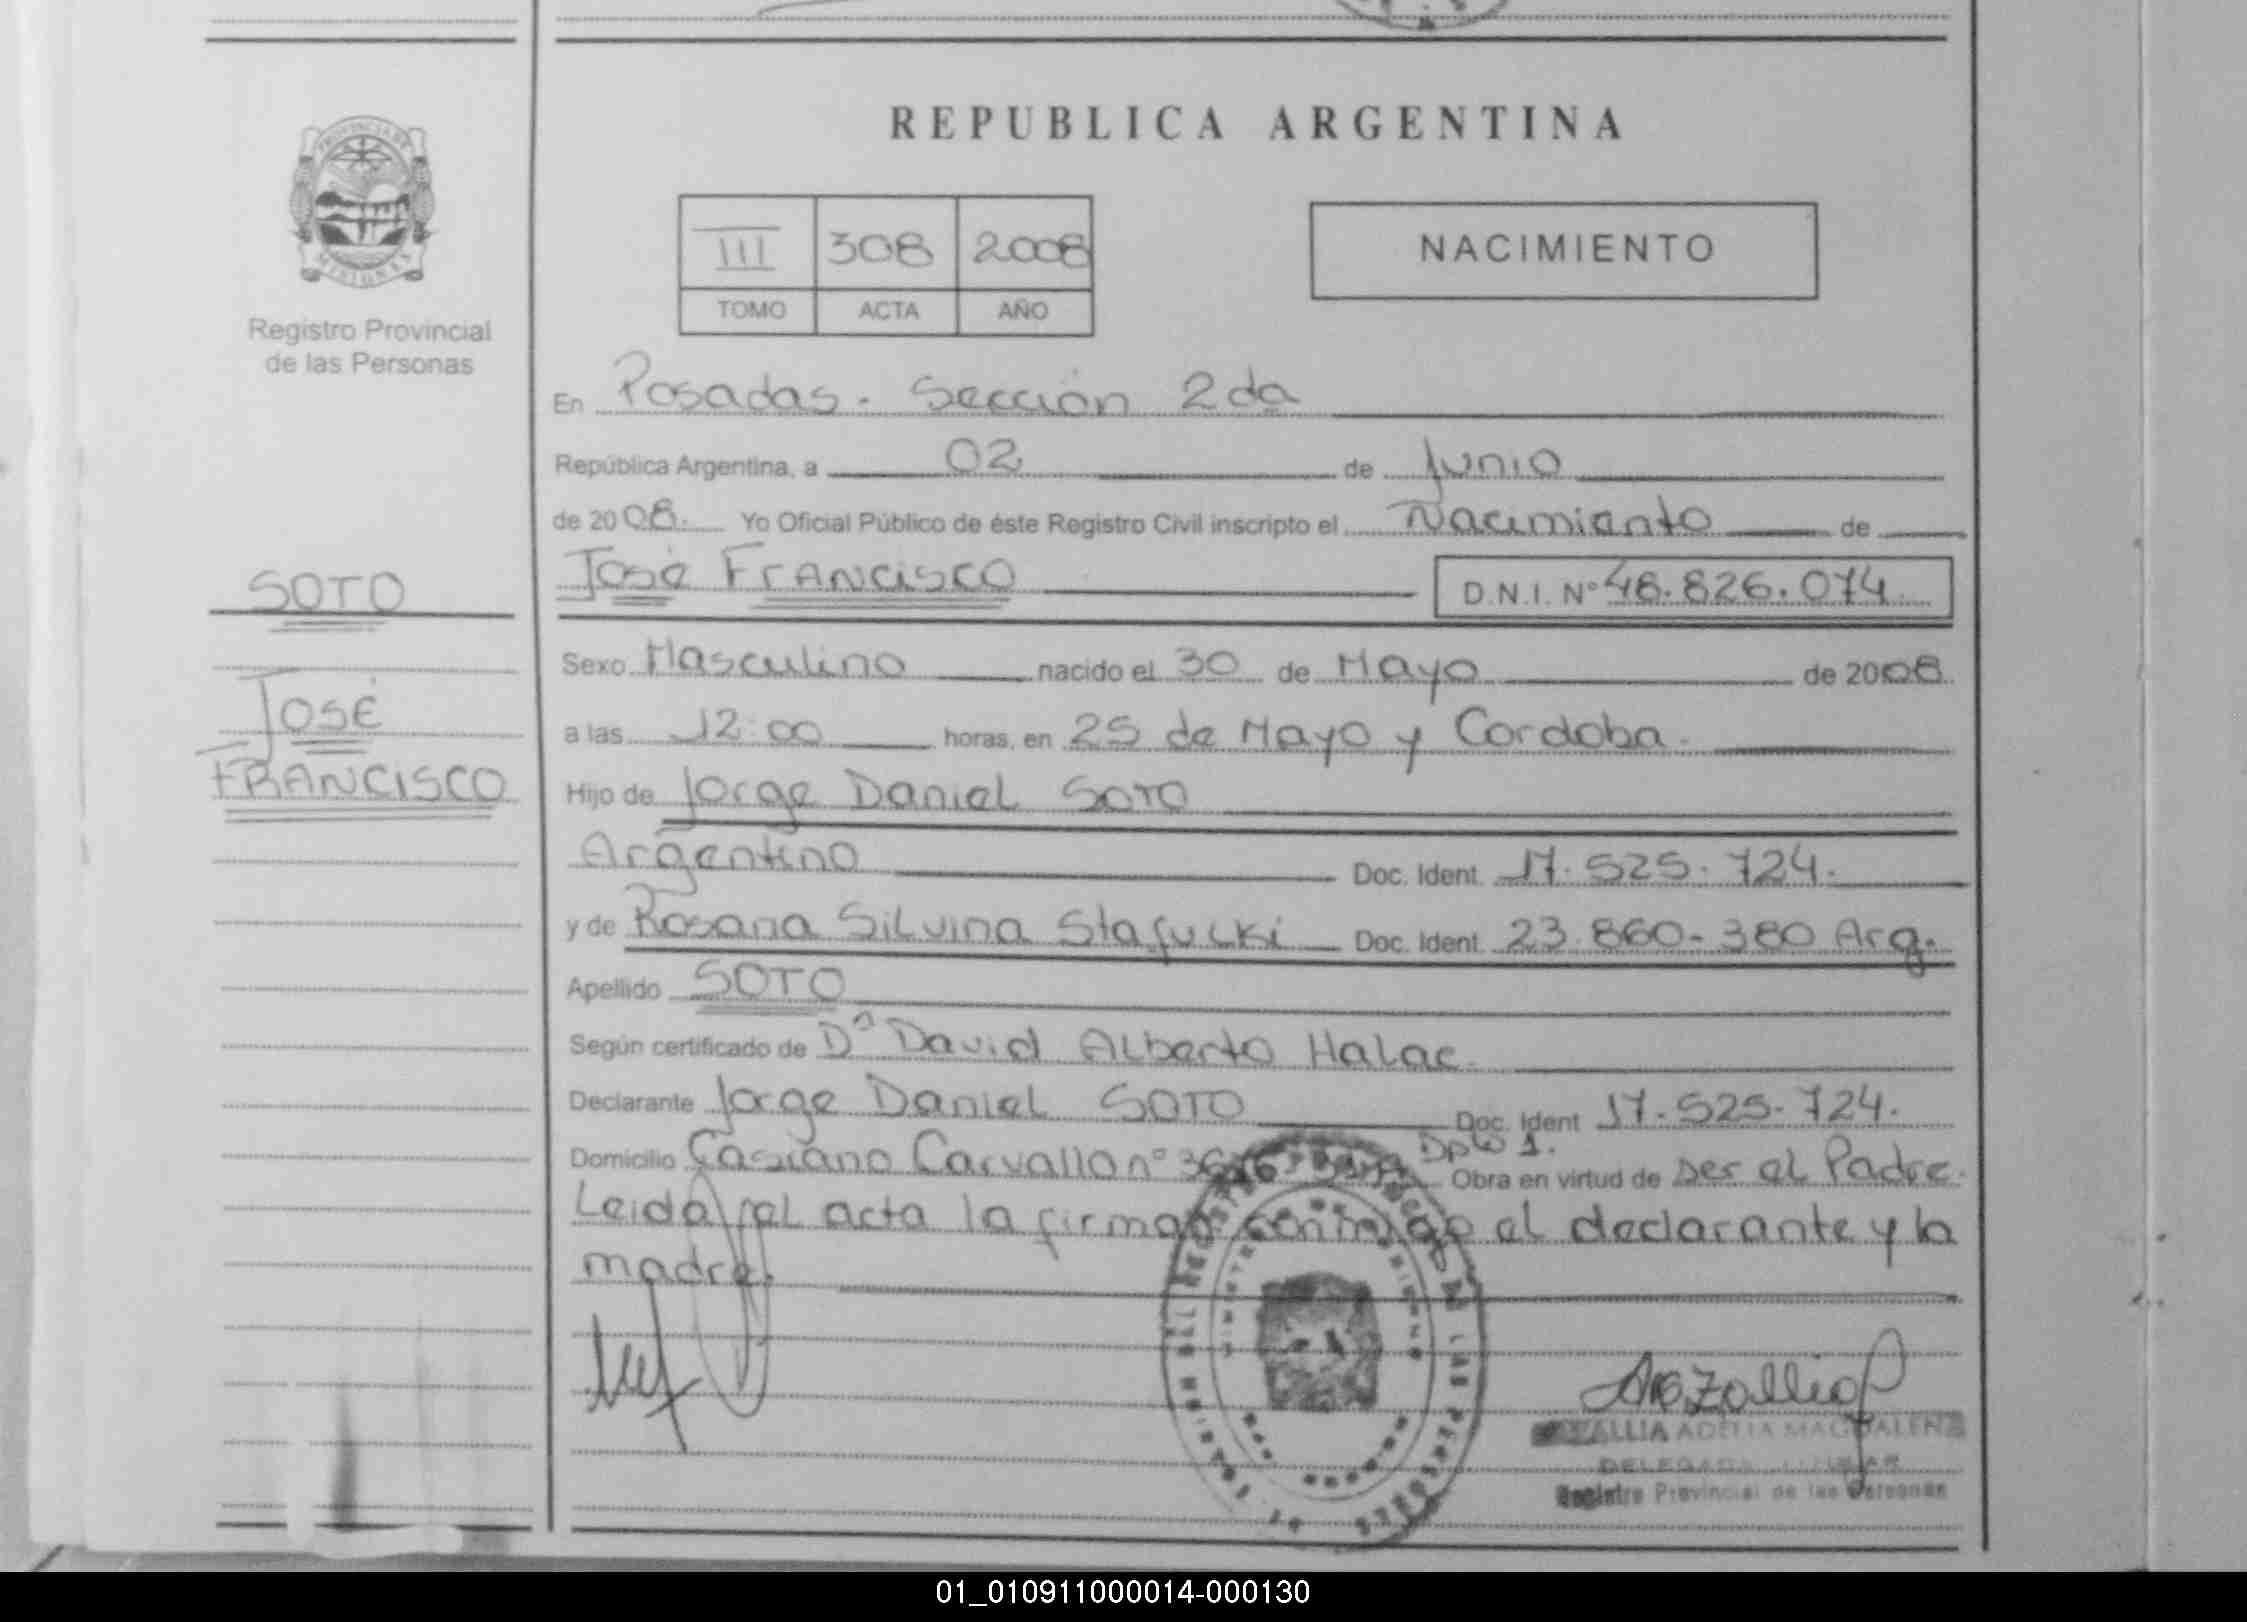 REPUBLICA ARGENTINA
PROVINCIA DE MISIONES
Registro Provincial
de las Personas
III 308 2008
TOMO ACTA AÑO
NACIMIENTO
En Posadas. Sección 2da
República Argentina, a 02 de Junio
de 2008. Yo Oficial Público de éste Registro Civil inscripto el Nacimiento de
SOTO
JOSÉ
FRANCISCO
José FRANCISCO D.N.I. Nº 48.826.074
Sexo Masculino nacido el 30 de Mayo de 2008
a las 12:00 horas, en 25 de Mayo y Cordoba.
Hijo de Jorge Daniel SOTO
Argentino Doc. Ident. 17.525.724.
y de Rosana Silvina Doc. Ident. 23.860.380 Arg.
Apellido SOTO
Según certificado de David Alberto Halac.
Declarante Jorge Daniel SOTO Doc. Ident 17.525.724.
Domicilio Casiano Carvallo nº Dpto 1. Obra en virtud de ser el Padre.
Leida el acta la firman conmigo el declarante y la
madre.
ADELIA MAGDALENA
DELEGADA TITULAR
Registro Provincial de las Personas
01_010911000014-000130